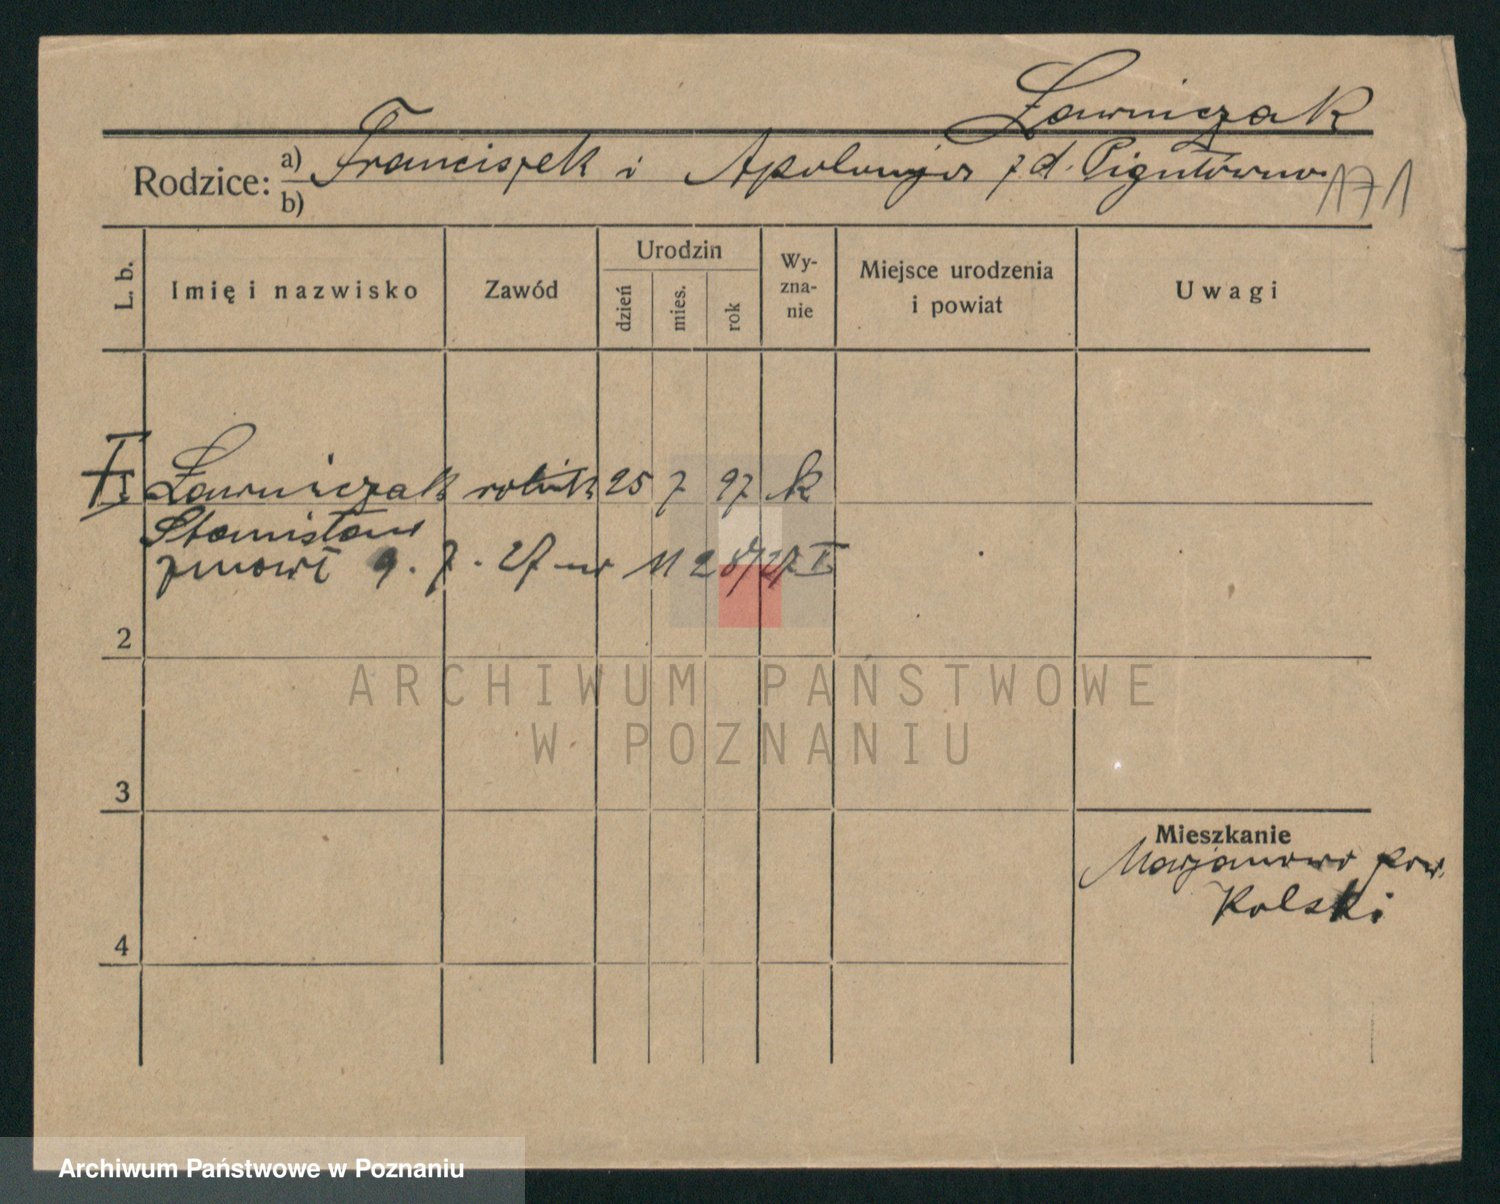 Ławniczak
Rodzice: a) Franciszek i Apolonja z d. Pigułówna 171
b)
L. b. Imię i nazwisko Zawód Urodzin dzień mies. rok Wy-zna-nie Miejsce urodzenia i powiat Uwagi
Ławniczak rolnik 25 7 97 k
Stanisław
zmarł 9. 7. 27 w 11 28/27 I
2
ARCHIWUM PAŃSTWOWE
W POZNANIU
3
Mieszkanie
Marjanowo pow.
Kolski
4
Archiwum Państwowe w Poznaniu